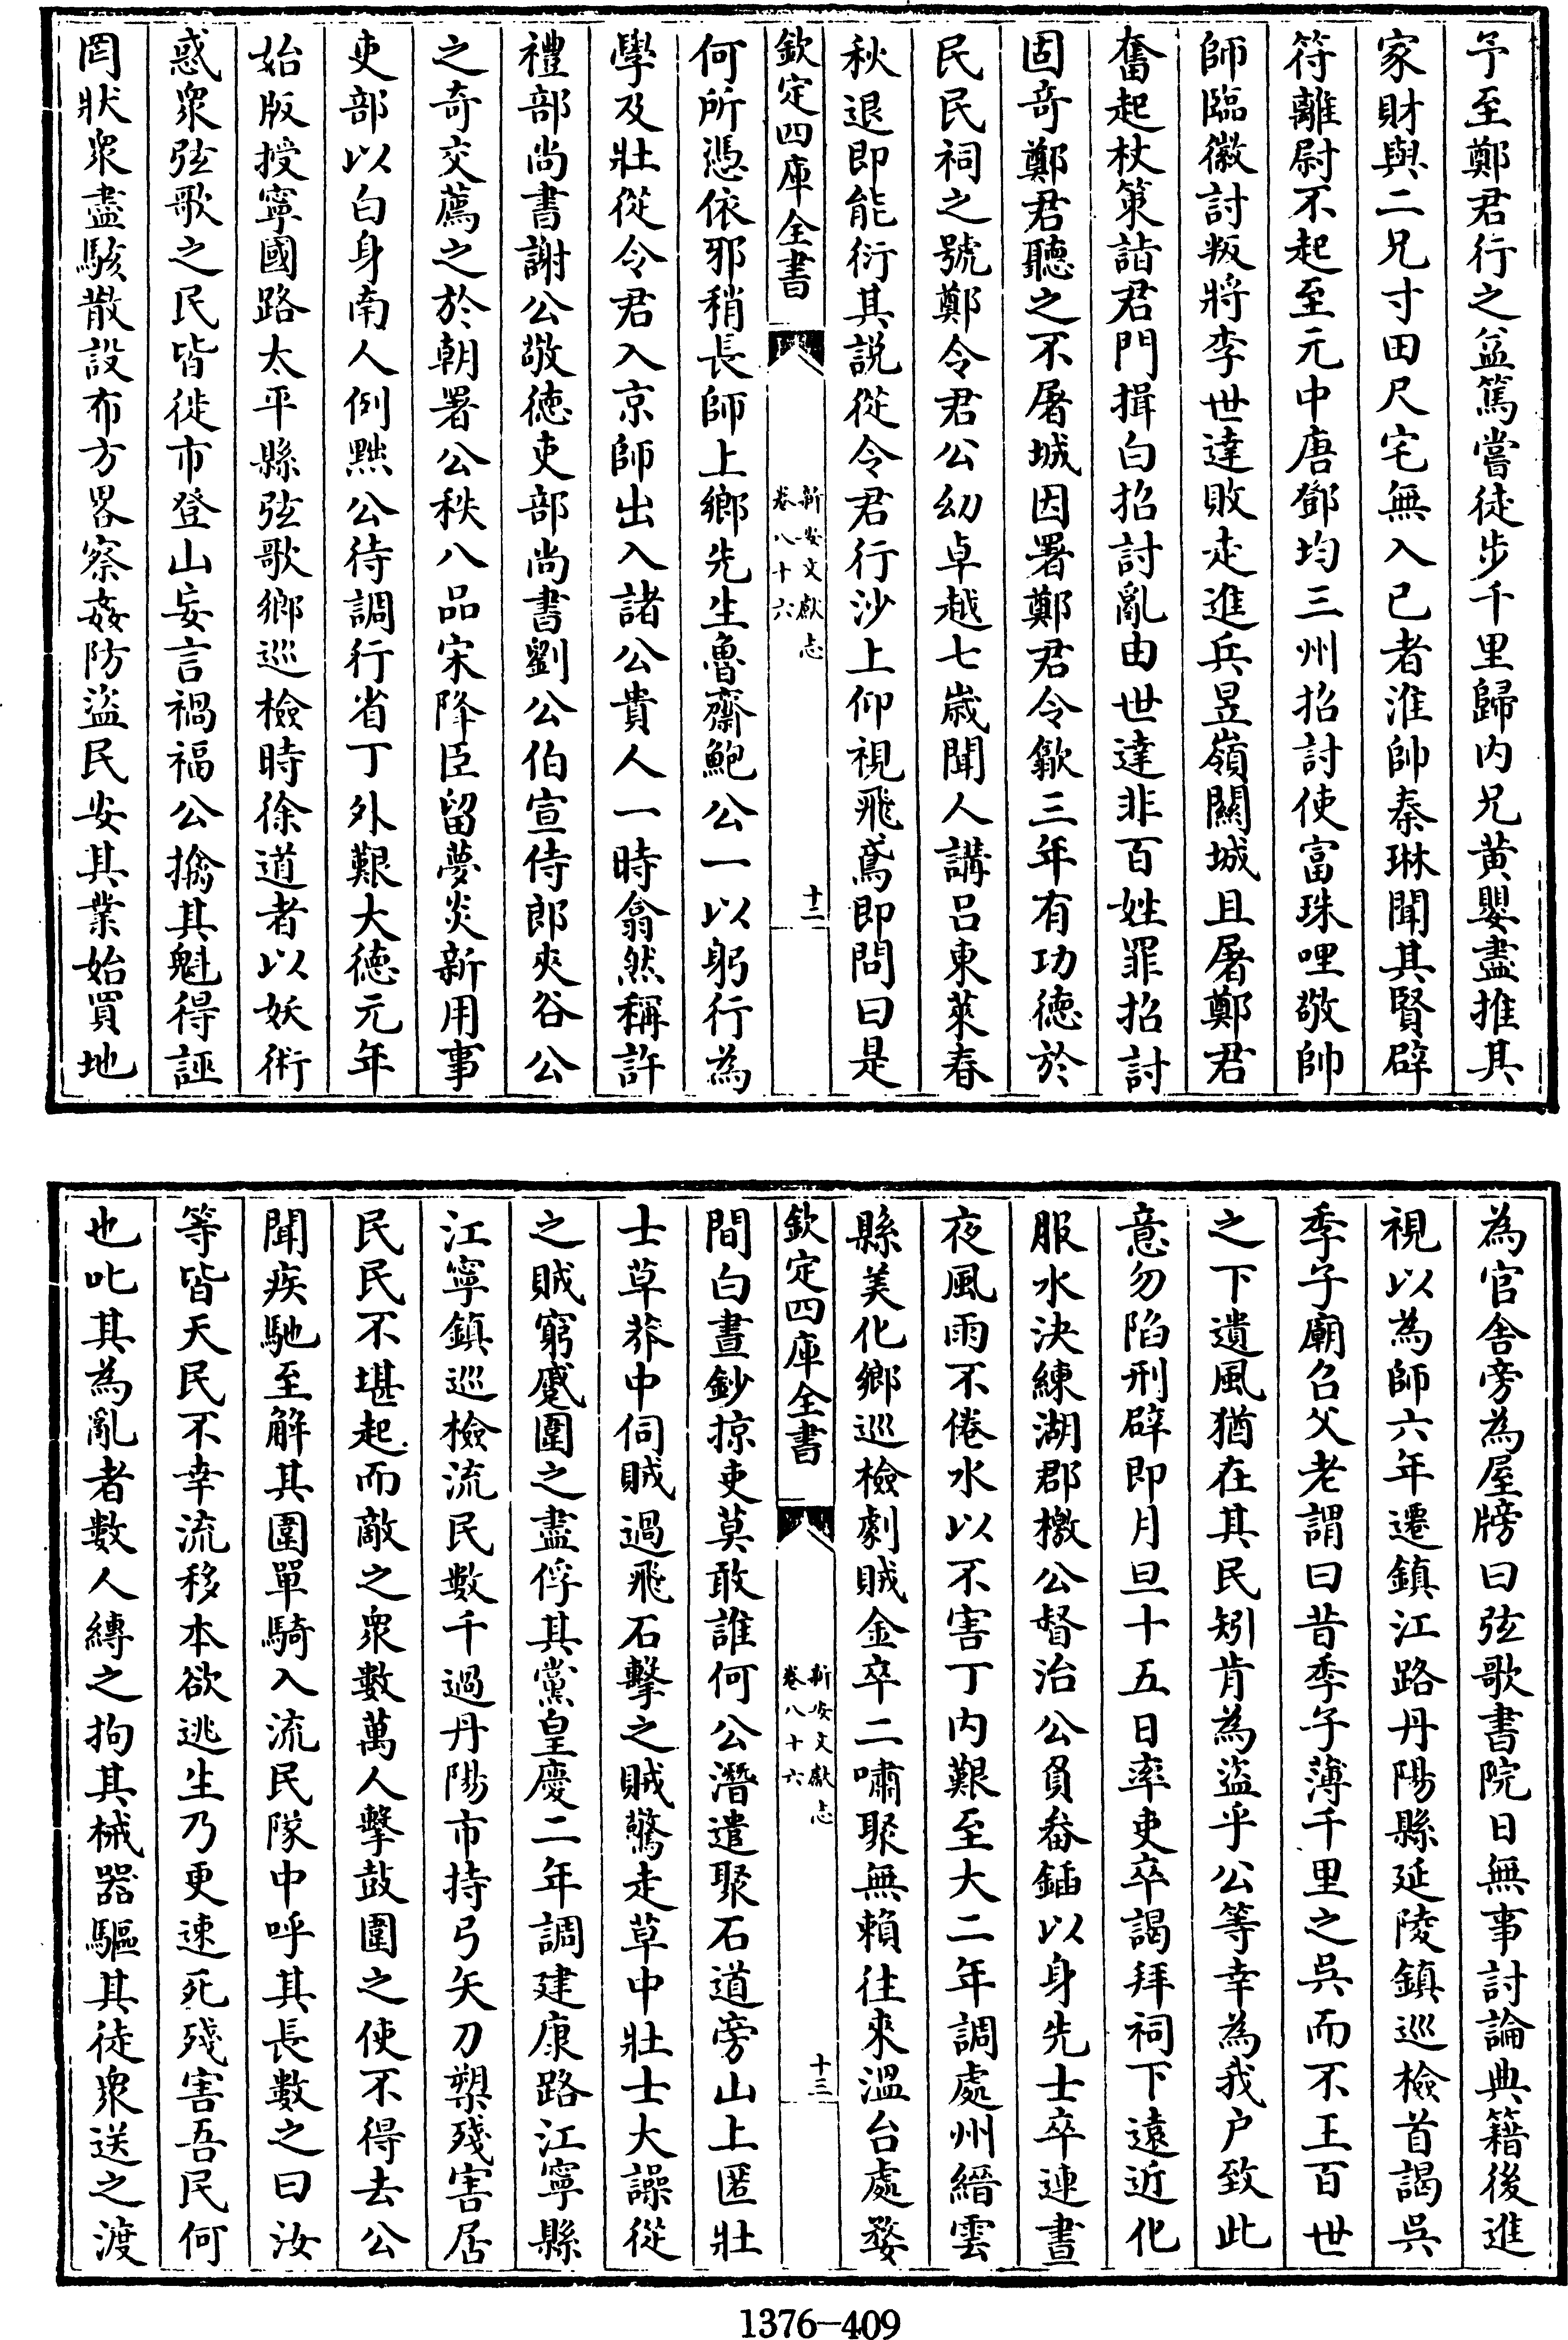 予至鄭君行之益篤嘗徒步千里歸内兄黄嬰盡推其
家財與二兄寸田尺宅無入已者淮帥秦琳聞其賢辟
符離尉不起至元中唐鄧均三州招討使富珠哩敬帥
師臨徽討叛將李世達敗走進兵昱嶺關城且屠鄭君
奮起杖策詣君門揖白招討亂由世達非百姓罪招討
固竒鄭君聽之不屠城因署鄭君令歙三年有功德於
民民祠之號鄭令君公幼卓越七歳聞人講吕東萊春
秋退即能衍其説從令君行沙上仰視飛鳶即問曰是
欽定四庫全書
新安文獻志
卷八十六
十二
何所憑依邪稍長師上鄉先生魯齋鮑公一以躬行為
學及壯從令君入京師出入諸公貴人一時翕然稱許
禮部尚書謝公敬徳吏部尚書劉公伯宣侍郎夾谷公
之奇交薦之於朝署公秩八品宋降臣留夢炎新用事
吏部以白身南人例黜公待調行省丁外艱大徳元年
始版授寧國路太平縣弦歌鄉巡檢時徐道者以妖術
惑衆弦歌之民皆徙市登山妄言禍福公擒其魁得誣
罔狀衆盡駭散設布方畧察姦防盜民安其業始買地
為官舍旁為屋牓曰弦歌書院日無事討論典籍後進
視以為師六年遷鎮江路丹陽縣延陵鎮巡檢首謁吳
季子廟召父老謂曰昔季子薄千里之吳而不王百世
之下遺風猶在其民矧肯為盜乎公等幸為我户致此
意勿陷刑辟即月旦十五日率吏卒謁拜祠下遠近化
服水決練湖郡檄公督治公負畚鍤以身先士卒連晝
夜風雨不倦水以不害丁内艱至大二年調處州縉雲
縣美化鄉巡檢劇賊金卒二嘯聚無賴往來溫台處婺
欽定四庫全書
新安文獻志
卷八十六
十三
間白晝鈔掠吏莫敢誰何公潛遣聚石道旁山上匿壯
士草莽中伺賊過飛石擊之賊驚走草中壯士大譟從
之賊窮蹙圍之盡俘其黨皇慶二年調建康路江寧縣
江寧鎮巡檢流民數千過丹陽市持弓矢刀槊殘害居
民民不堪起而敵之衆數萬人擊鼓圍之使不得去公
聞疾馳至解其圍單騎入流民隊中呼其長數之曰汝
等皆天民不幸流移本欲逃生乃更速死殘害吾民何
也叱其為亂者數人縛之拘其械器驅其徒衆送之渡
1376-409